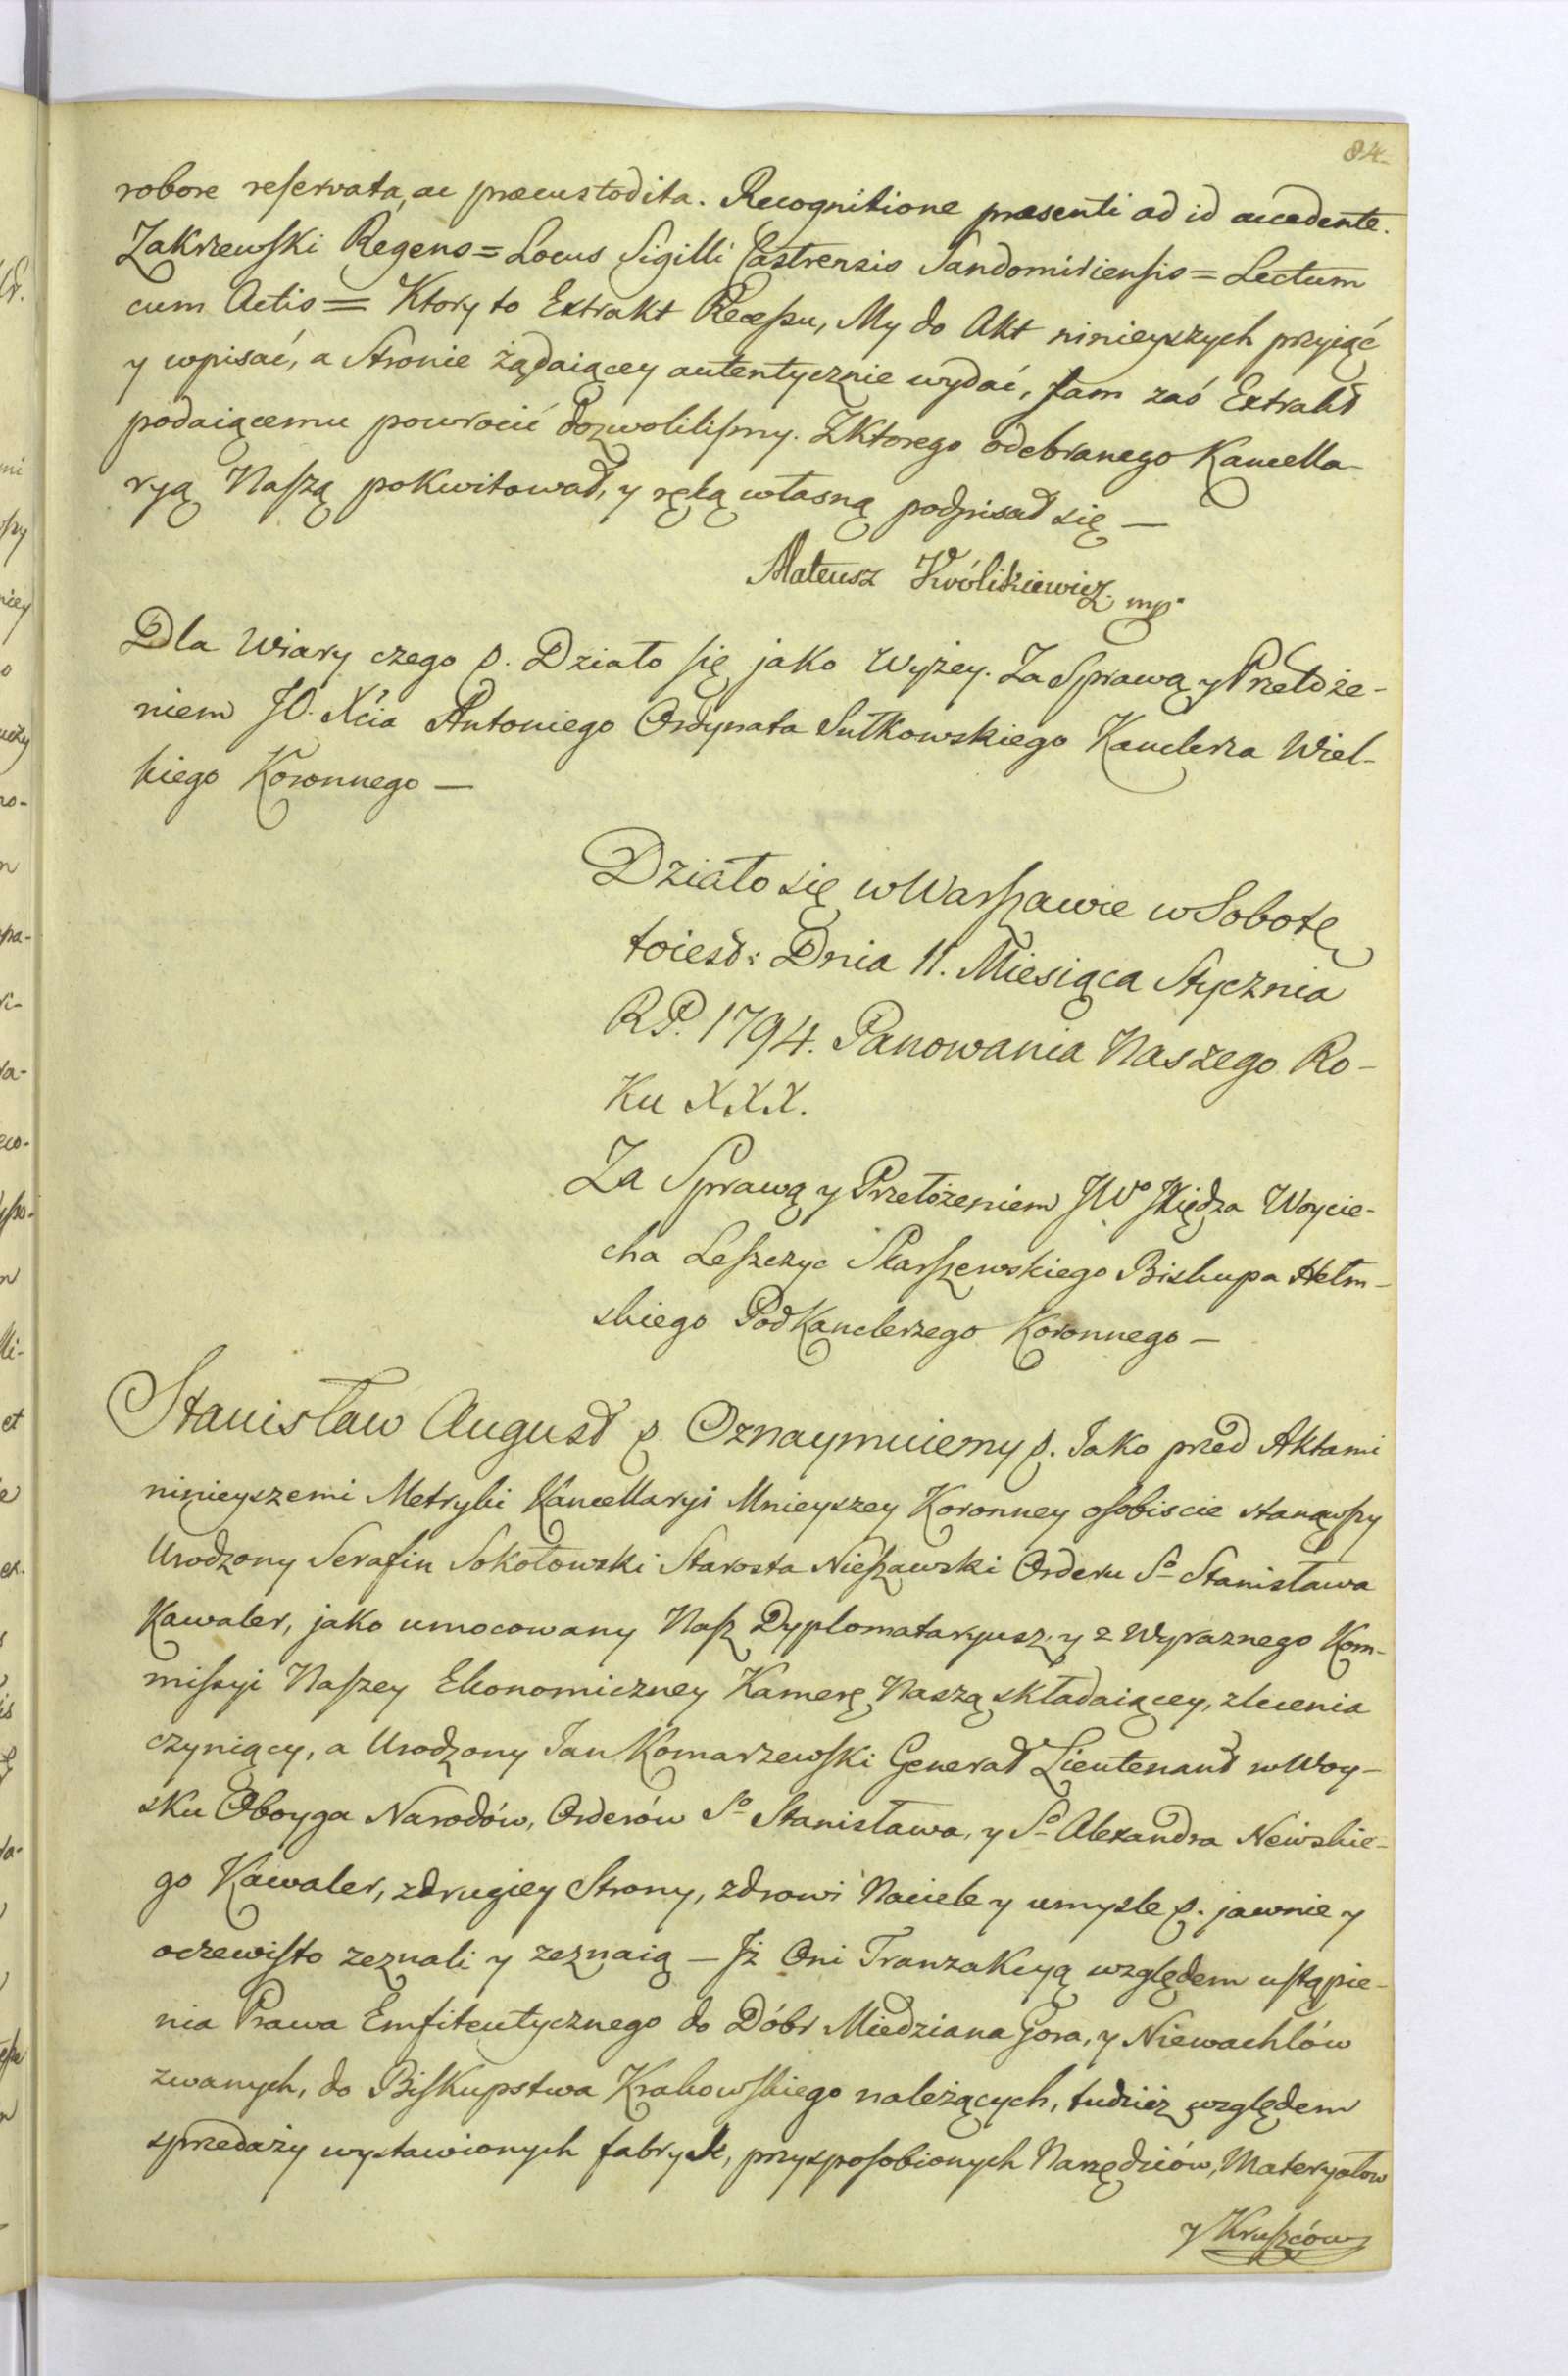 84.
robore reservata, ac præcustodita. Recognitione præsenti ad id accedente.
Zakrzewski Regens = Locus Sigilli Castrensis Sandomiriensis = Lectum
cum Actis = Ktory to Extrakt Recessu, My do Akt ninieyszych przyiąć
y wpisać, a Stronie żądaiącey autentycznie wydać, sam zaś Extrakt
podaiącemu powrocić dozwolilismy. Z Ktorego odebranego Kancella-
ryą Naszą pokwitował, y ręką własną podpisał się —
Mateusz Królikiewicz mp.
Dla Wiary czego p. Działo się jako Wyżey. Za Sprawą y Przełoże-
niem JO. Xcia Antoniego Ordynata Sułkowskiego Kanclerza Wiel-
kiego Koronnego —
Działo się w Warszawie w Sobotę
toiest: Dnia 11. Miesiąca Stycznia
R.P. 1794. Panowania Naszego Ro-
ku XXX.
Za Sprawą y Przełożeniem JWo JXiędza Woycie-
cha Leszczyc Skarszewskiego Biskupa Hełm-
skiego PodKanclerzego Koronnego —
Stanisław August p. Oznaymuiemy p. Jako przed Aktami
ninieyszemi Metryki Kancellaryi Mnieyszey Koronney osobiscie stanąwszy
Urodzony Serafin Sokołowski Starosta Nieszawski Orderu So Stanisława
Kawaler, jako umocowany Nasz Dyplomataryusz, y z Wyraznego Kom-
missyi Naszey Ekonomiczney Kamerę Naszą składaiącey, zlecenia
czyniący, a Urodzony Jan Komarzewski Generał Lieutenant w Woy-
sku Oboyga Narodów, Orderów So Stanisława, y So Alexandra Newskie-
go Kawaler, z drugiey Strony, zdrowi Naciele y umysle p. jawnie y
oczewisto zeznali y zeznaią — Jż Oni Tranzakcyą względem ustąpie-
nia Prawa Emfiteutycznego do Dóbr Miedziana Gora, y Niewachlów
zwanych, do Biskupstwa Krakowskiego należących, tudzież względem
sprzedaży wystawionych fabryk, przysposobionych Narzędziów, Materyałow
y Kruszców